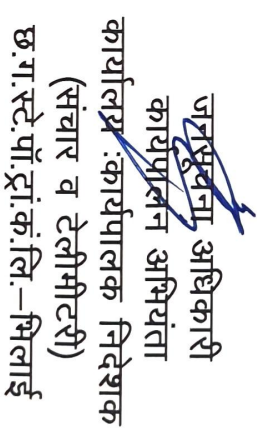 जनसूचना अधिकारी
कार्यपालन अभियंता
कार्यालय :कार्यपालक निदेशक
(संचार व टेलीमीटरी)
छ.ग.स्टे.पॉ.ट्रां.कं.लि.–भिलाई